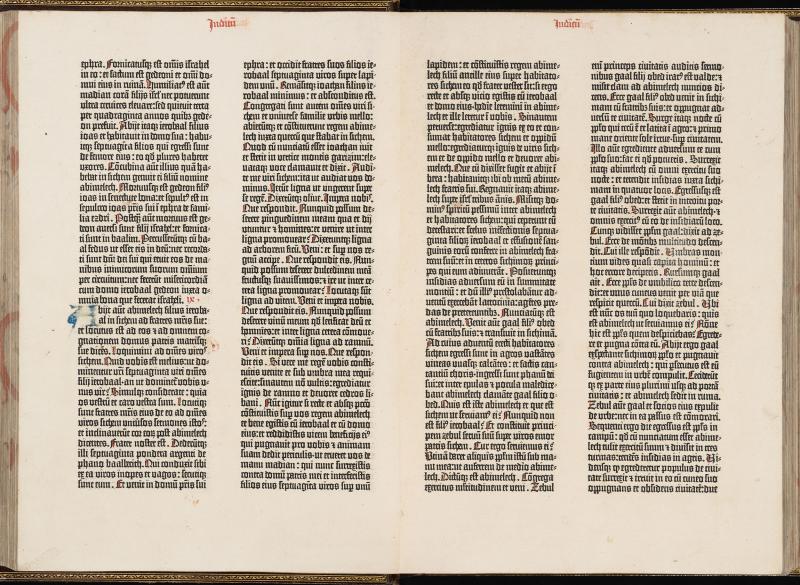 Iudicū
ephra. Fornicatusq; est omīs israhel
in eo: et factum est gedeoni et omī do-
mui eius in ruinā. Humiliat⁹ est aūt
madian corā filijs isrł nec potuerunt
ultra ceruices eleuare: sed quieuit terra
per quadraginta annos quib⁹ gede-
on prefuit. Abijt itaq; ierobaal filius
ioas et habitauit in domo sua: habu-
itq; septuaginta filios qui egressi sunt
de femore eius: eo qd̄ plures haberet
uxores. Cōcubina aūt illius quā ha-
bebat in sichem genuit ei filiū nomine
abimelech. Mortuusq; est gedeon fili⁹
ioas in senectute bona: et sepult⁹ est in
sepulcro ioas pris sui ī ephra de fami-
lia ezdri. Postq̄ aūt mortuus est ge-
deon auersi sunt filij israhel: et fornica-
ti sunt in baalim. Percusseruntq; cū ba-
al fedus ut esset eis in deū: nec recorda-
ti sunt dn̄i dei sui qui eruit eos de ma-
nibus inimicorum suorum omnium
per circuitum: nec fecerūt misericordiā
cum domo ierobaal gedeon iuxta o-
mnia bona que fecerat israheli. ix.
Abijt aūt abimelech filius ieroba-
al in sichem ad fratres mr̄is sue:
et locutus est ad eos et ad omnem co-
gnationem domus patris matris
sue dicēs. Loquimini ad omēs viros
sichem. Quid vobis est melius: ut do-
minentur vr̄i septuaginta viri omēs
filij ierobaal an ut dominet vobis v-
nus vir? Simulq; considerate: quia
os vestrū et caro vestra sum. Locutiq;
sunt fratres mr̄is eius de eo ad omēs
viros sichem uniūsos sermones istos:
et inclinauerūt cor eorū post abimelech
dicentes. Frater noster est. Dederuntq;
illi septuaginta pondera argenti de
phano baalberith. Qui conduxit sibi
ex ea viros inopes et vagos: secutiq;
sunt eum. Et venit in domū pr̄is sui
ephra: et occidit fratres suos filios ie-
robaal septuaginta viros super lapi-
dem unū. Remāsitq; ioathan filius ie-
robaal minimus: et absconditus est.
Congregati sunt autem omēs viri si-
chem et uniuerse familie urbis mello:
abieruntq; et cōstituerunt regem abime-
lech iuxta quercū que stabat in sichem.
Quod cū nunciatū esset ioathan iuit
et stetit in vertice montis garizim: ele-
uataq; voce clamauit et dixit. Audi-
te me viri sichem: ita ut audiat vos do-
minus. Ierūt ligna ut ungerent super
se regē. Dixeruntq; oliue. Impera nobis.
Que respondit. Nunquid possum de-
serere pinguedinem meam qua et dij
utuntur et homines: et venire ut inter
ligna promouear? Dixeruntq; ligna
ad arborem ficū. Veni: et sup nos re-
gnū accipe. Que respondit eis. Nun-
quid possum deserere dulcedinem meā
fructusq; suauissimos: et ire ut inter ce-
tera ligna promouear? Locutaq; sūt
ligna ad vitem. Veni et impera nobis.
Que respondit eis. Nunquid possum
deserere vinū meum qd̄ letificat deū et
homines: et inter ligna cetera cōmoue-
ri? Dixeruntq; omīa ligna ad ramnū.
Veni et impera sup nos. Que respon-
dit eis. Si vere me regē vobis consti-
tuitis venite et sub umbra mea requi-
escite: si autem nō vultis: egrediatur
ignis de ramno et deuoret cedros li-
bani. Nūc igitur si recte et absq; pccō
cōstituistis sup vos regem abimelech
et bene egistis cū ierobaal et cū domo
eius: et reddidistis vicem beneficijs ei⁹
qui pugnauit pro vobis et animam
suam dedit periculis ut erueret vos de
manu madian: qui nunc surrexistis
contra domū patris mei et interfecistis
filios eius septuaginta viros sup unū
Iudicū
lapidem: et cōstituistis regem abime-
lech filiū ancille eius super habitato-
res sichem eo qd̄ frater vester sit: si ergo
recte et absq; vicio egistis cū ierobaal
et domo eius hodie letemini in abime-
lech et ille letetur ī vobis. Sin autem
peruerse: egrediatur ignis ex eo et con-
sumat habitatores sichem et opidū
mello: egrediaturq; ignis de viris sich-
em et de opido mello et deuoret abi-
melech. Que cū dixisset fugit et abijt ī
bera: habitauitq; ibi ob metū abime-
lech fratris sui. Regnauit itaq; abime-
lech super isrł tribus ānis. Misitq; do-
min⁹ spiritū pessimū inter abimelech
et habitatores sichem: qui ceperunt eū
detestari: et scelus interfectionis septua-
ginta filiorū ierobaal et effusionē san-
guinis eorū conferre in abimelech fra-
trem suū: et in ceteros sichimoꝝ princi-
pes qui eum adiuuerāt. Posueruntq;
insidias aduersus eū in summitate
montiū: et dū illi⁹ prestolabātur ad-
uentū exercebāt latrocinia: agētes pre-
das de pretereuntib⁹. Nunciatūq; est
abimelech. Venit aūt gaal fili⁹ obed
cū fratrib⁹ suis: et transiuit in sichimā.
Ad cuius aduentū erecti habitatores
sichem egressi sunt in agros vastātes
vineas uuasq; calcātes: et factis can-
tantiū choris: ingressi sunt phanū dei
sui: et inter epulas et pocula maledice-
bant abimelech clamāte gaal filio o-
bed. Quis est iste abimelech et que est
sichem ut seruiam⁹ ei? Nunquid non
est fili⁹ ierobaal? Et constituit princi-
pem zebul seruū suū sup viros emor
patris sichem. Cur ergo seruiemus ei?
Utinā daret aliquis pplm̄ istū sub ma-
nu mea: ut auferrem de medio abime-
lech. Dictūq; est abimelech. Cōgrega
exercitus multitudinem et veni. Zebul
enī princeps ciuitatis auditis sermo-
nibus gaal filij obed irat⁹ est valde: et
misit clam ad abimelech nuncios di-
cens. Ecce gaal fili⁹ obed venit in sichi-
mam cū fratrib⁹ suis: et oppugnat ad-
uersū te ciuitatē. Surge itaq; nocte cū
pplo qui tecū ē et latita ī agro: et primo
mane oriente sole irrue sup ciuitatem.
Illo aūt egrediente aduersum te cum
pplo suo: fac ei qd̄ potueris. Surrexit
itaq; abimelech cū omni exercitu suo
nocte: et tetendit insidias iuxta sichi-
mam in quatuor locis. Egressusq; est
gaal fili⁹ obed: et stetit in introitu por-
te ciuitatis. Surrexit aūt abimelech et
omnis exercit⁹ cū eo de insidiaꝝ loco.
Cumq; vidisset pplm̄ gaal: dixit ad ze-
bul. Ecce de mōtib⁹ multitudo descen-
dit. Cui ille respōdit. Umbras mon-
tium vides quasi capita hominū: et
hoc errore deciperis. Rursumq; gaal
ait. Ecce pplus de umbilico terre descen-
dit: et unus cuneus venit per viā que
respicit quercū. Cui dixit zebul. Ubi
est nūc os tuū quo loquebaris: quis
est abimelech ut seruiamus ei? Nōne
hic est ppls quem despiciebas? Egrede-
re et pugna cōtra eū. Abijt ergo gaal
expectante sichimoꝝ pplo et pugnauit
contra abimelech: qui psecutus est eū
fugientem in urbē compulit. Cecideruūt-
q; ex parte eius plurimi usq; ad portā
ciuitatis: et abimelech sedit in ruma.
Zebul aūt gaal et socios eius expulit
de urbe: nec in ea passus est cōmorari.
Sequenti ergo die egressus est ppls in
campū: qd̄ cū nunciatum esset abime-
lech tulit exercitū suum et diuisit in tres
turmas: tendēs insidias in agris. Vi-
densq; qp egrederetur populus de ciui-
tate surrexit et irruit in eos cū cuneo suo
oppugnans et obsidens ciuitatē: due